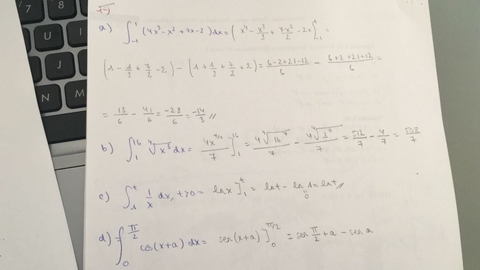 a) ∫₋₁¹ (4x³-x²+7x-2)dx = (x⁴ - x³/3 + 7x²/2 - 2x]₋₁¹ =
(1 - 1/3 + 7/2 - 2) - (1 + 1/3 + 7/2 + 2) = (6-2+21-12)/6 - (6+2+21+12)/6 =
= 13/6 - 41/6 = -28/6 = -14/3 //
b) ∫₁¹⁶ ⁴√x³ dx = 4x^(7/4)/7 ]₁¹⁶ = 4⁴√16⁷/7 - 4⁴√1⁷/7 = 512/7 - 4/7 = 508/7
c) ∫₁ᵗ 1/x dx, t>0 = ln x ]₁ᵗ = ln t - ln 1 = ln t //
0
d) ∫₀^(π/2) cos(x+a) dx = sen(x+a) ]₀^(π/2) = sen π/2 + a - sen a